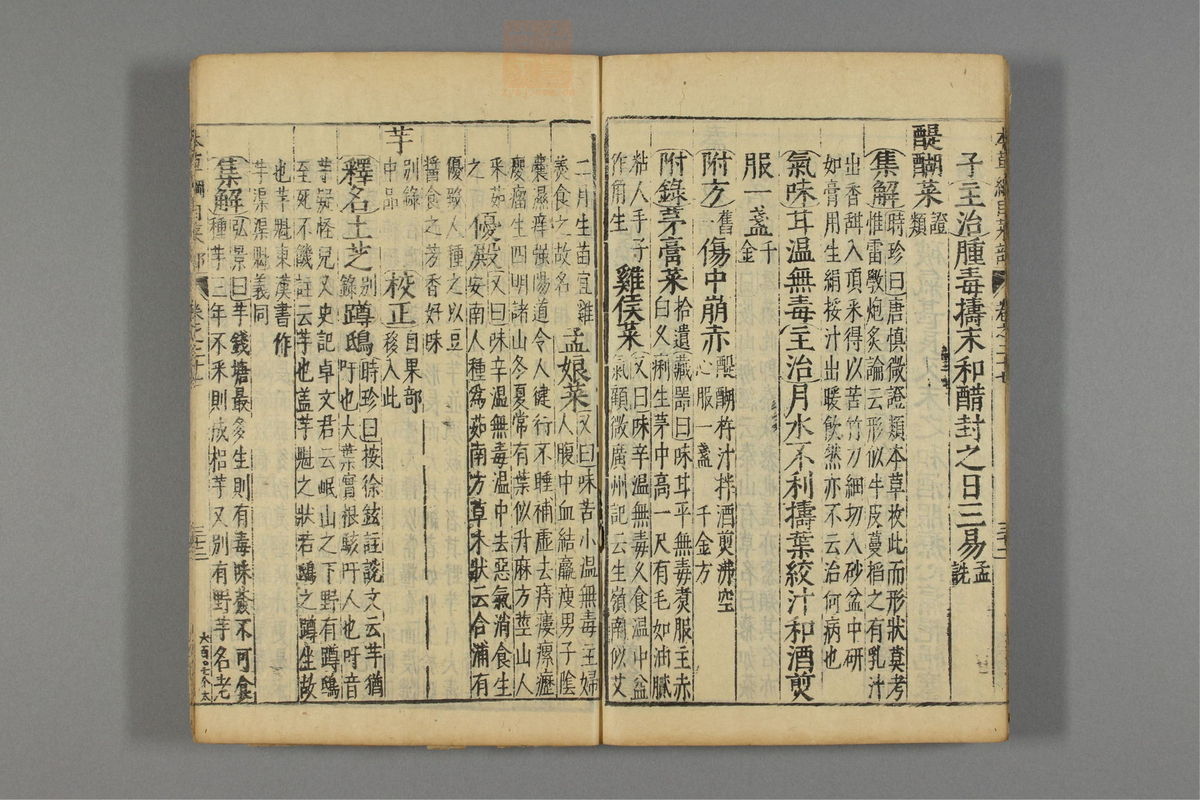 子主治腫毒擣末和醋封之日三易孟詵
醍醐菜證類
集解時珍曰唐慎微證類本草收此而形狀莫考
惟雷斅炮炙論云形似牛皮蔓搯之有乳汁
出香甜入頂采得以苦竹刀細切入砂盆中研
如膏用生絹挼汁出暖飲然亦不云治何病也
氣味甘溫無毒主治月水不利擣葉絞汁和酒煎
服一盞千金
附方舊一傷中崩赤醍醐杵汁拌酒煎沸空
心服一盞 千金方
附錄茅膏菜拾遺藏器曰味甘平無毒煑服主赤
白久痢生茅中高一尺有毛如油膩
粘人手子
作角生 雞侯菜又曰味辛溫無毒久食溫中益
氣顧微廣州記云生嶺南似艾
二月生苗宜雞
羹食之故名 孟娘菜又曰味苦小溫無毒主婦
人腹中血結羸瘦男子陰
囊濕癢强陽道令人健行不睡補虛去痔瘻瘰癧
癭瘤生四明諸山冬夏常有葉似升麻方莖山人
采茹
之 優殿又曰味辛溫無毒溫中去惡氣消食生
安南人種為茹南方草木狀云合浦有
優殿人種之以豆
醬食之芳香好味
芋別錄
中品 校正自果部
移入此
釋名土芝別錄蹲鴟時珍曰按徐鉉註說文云芋猶
吁也大葉實根駭吁人也吁音
芋疑怪兒又史記卓文君云岷山之下野有蹲鴟
至死不饑註云芋也蓋芋魁之狀若鴟之蹲坐故
也芋魁東漢書作
芋渠渠魁義同
集解弘景曰芋錢塘最多生則有毒味薟不可食
種芋三年不采則成梠芋又別有野芋名老